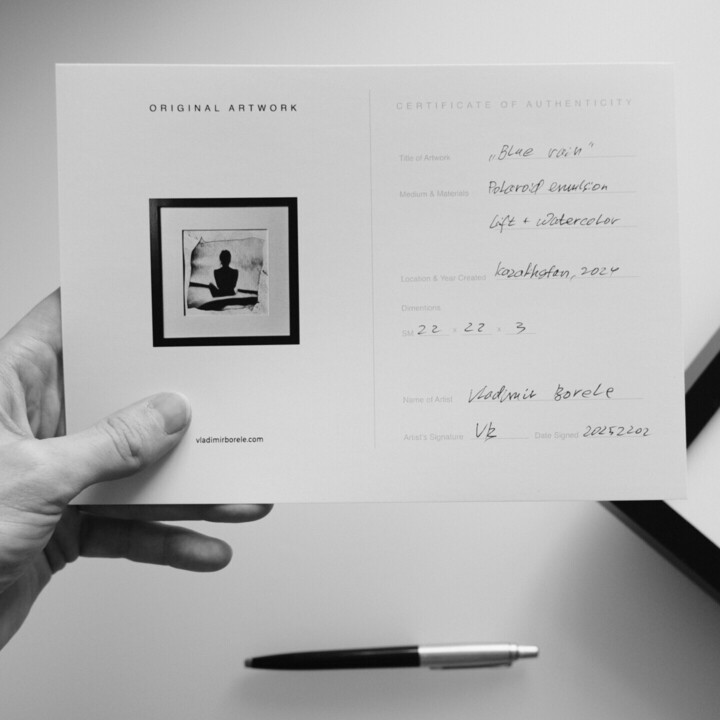 ORIGINAL ARTWORK
vladimirborele.com
CERTIFICATE OF AUTHENTICITY
Title of Artwork „Blue rain“
Medium & Materials Polaroid emulsion
lift + watercolor
Location & Year Created Kazakhstan, 2024
Dimensions
SM 22 x 22 x 3
Name of Artist Vladimir Borele
Artist's Signature VB Date Signed